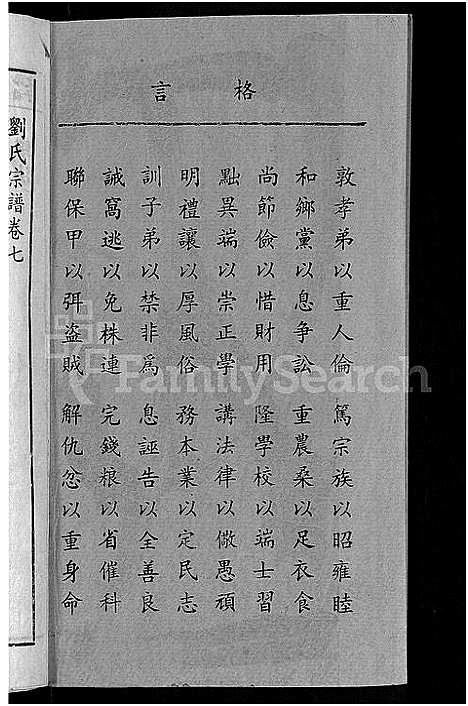 格言
敦孝弟以重人倫 篤宗族以昭雍睦
和鄉黨以息爭訟 重農桑以足衣食
尚節儉以惜財用 隆學校以端士習
黜異端以崇正學 講法律以儆愚頑
明禮讓以厚風俗 務本業以定民志
訓子弟以禁非爲 息誣告以全善良
誡窩逃以免株連 完錢粮以省催科
聯保甲以弭盜賊 解仇忿以重身命
劉氏宗譜卷七
FamilySearch